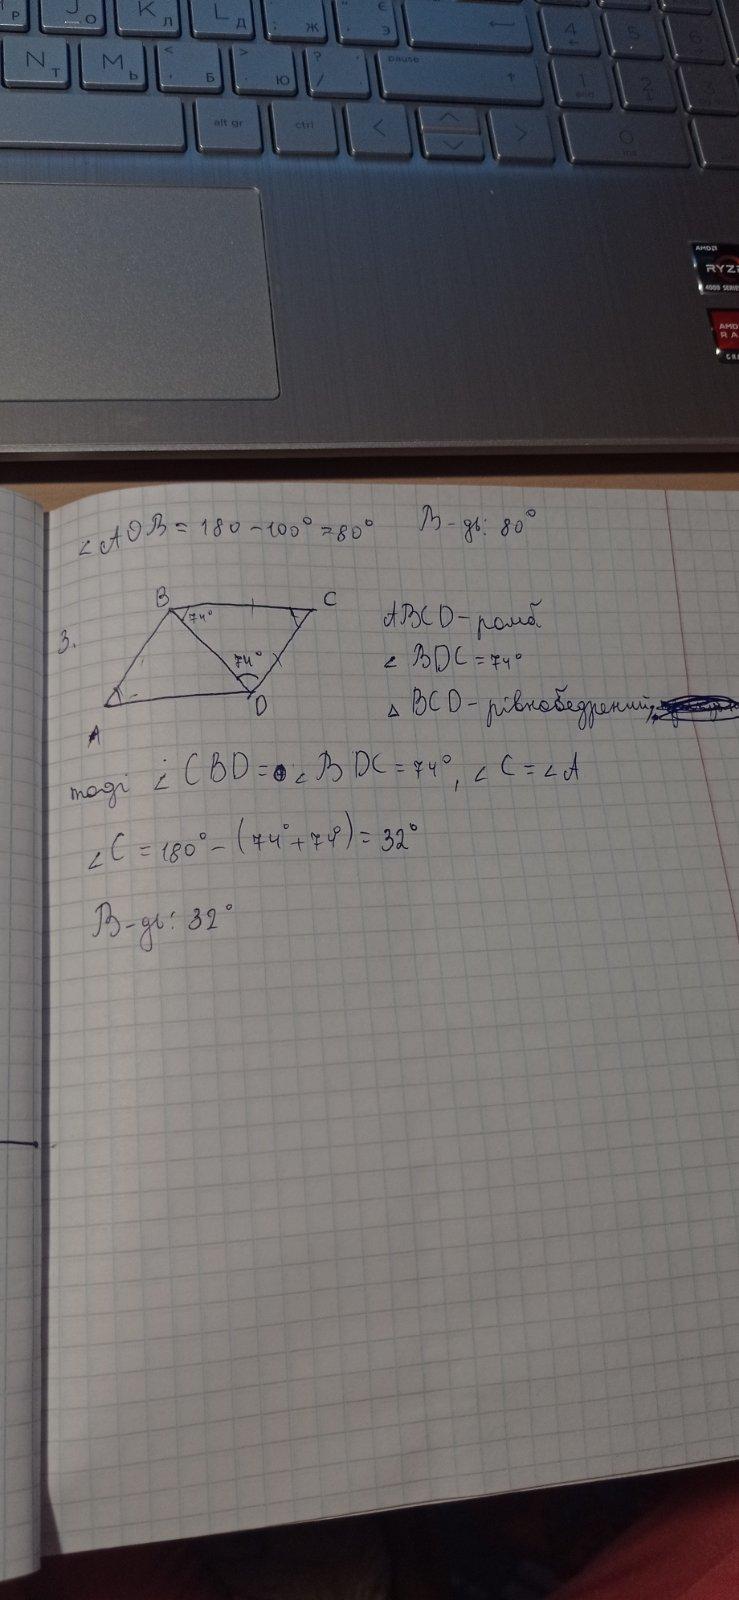 Р J О K Л L Д ; Ж Є Э
N Т M Ь < , Б > . Ю ? / pause 4 5 6
alt gr ctrl < > 1 end 2 3 0 ins
AMD RYZE 4000 SERIES
AMD RA
∠AOB = 180 - 100° = 80° В-дь: 80°
3. B 74° C 74° D A
ABCD - ромб
∠ BDC = 74°
△ BCD - рівнобедрений,
тоді ∠ CBD = ∠ BDC = 74°, ∠ C = ∠A
∠C = 180° - (74° + 74°) = 32°
В-дь: 32°